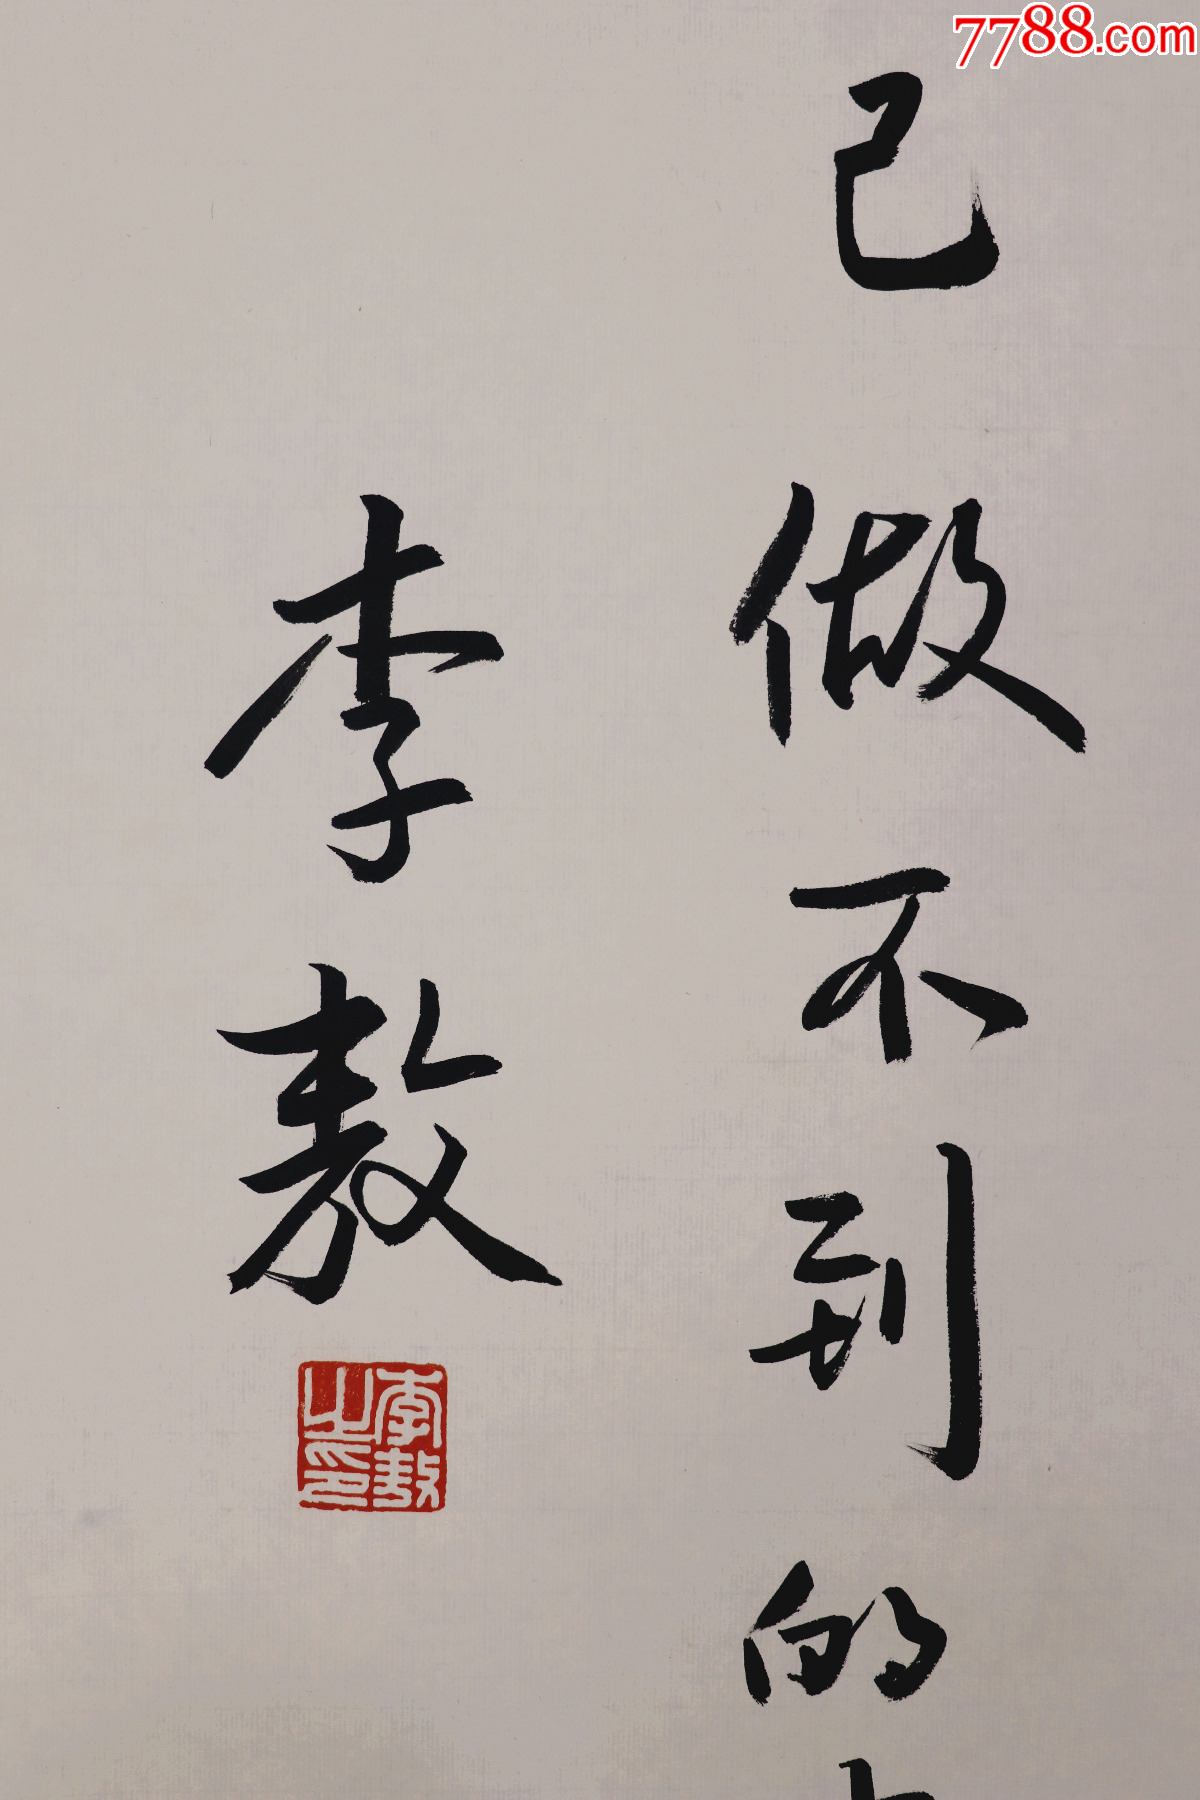 7788.com
己做不到的
李敖
李敖之印